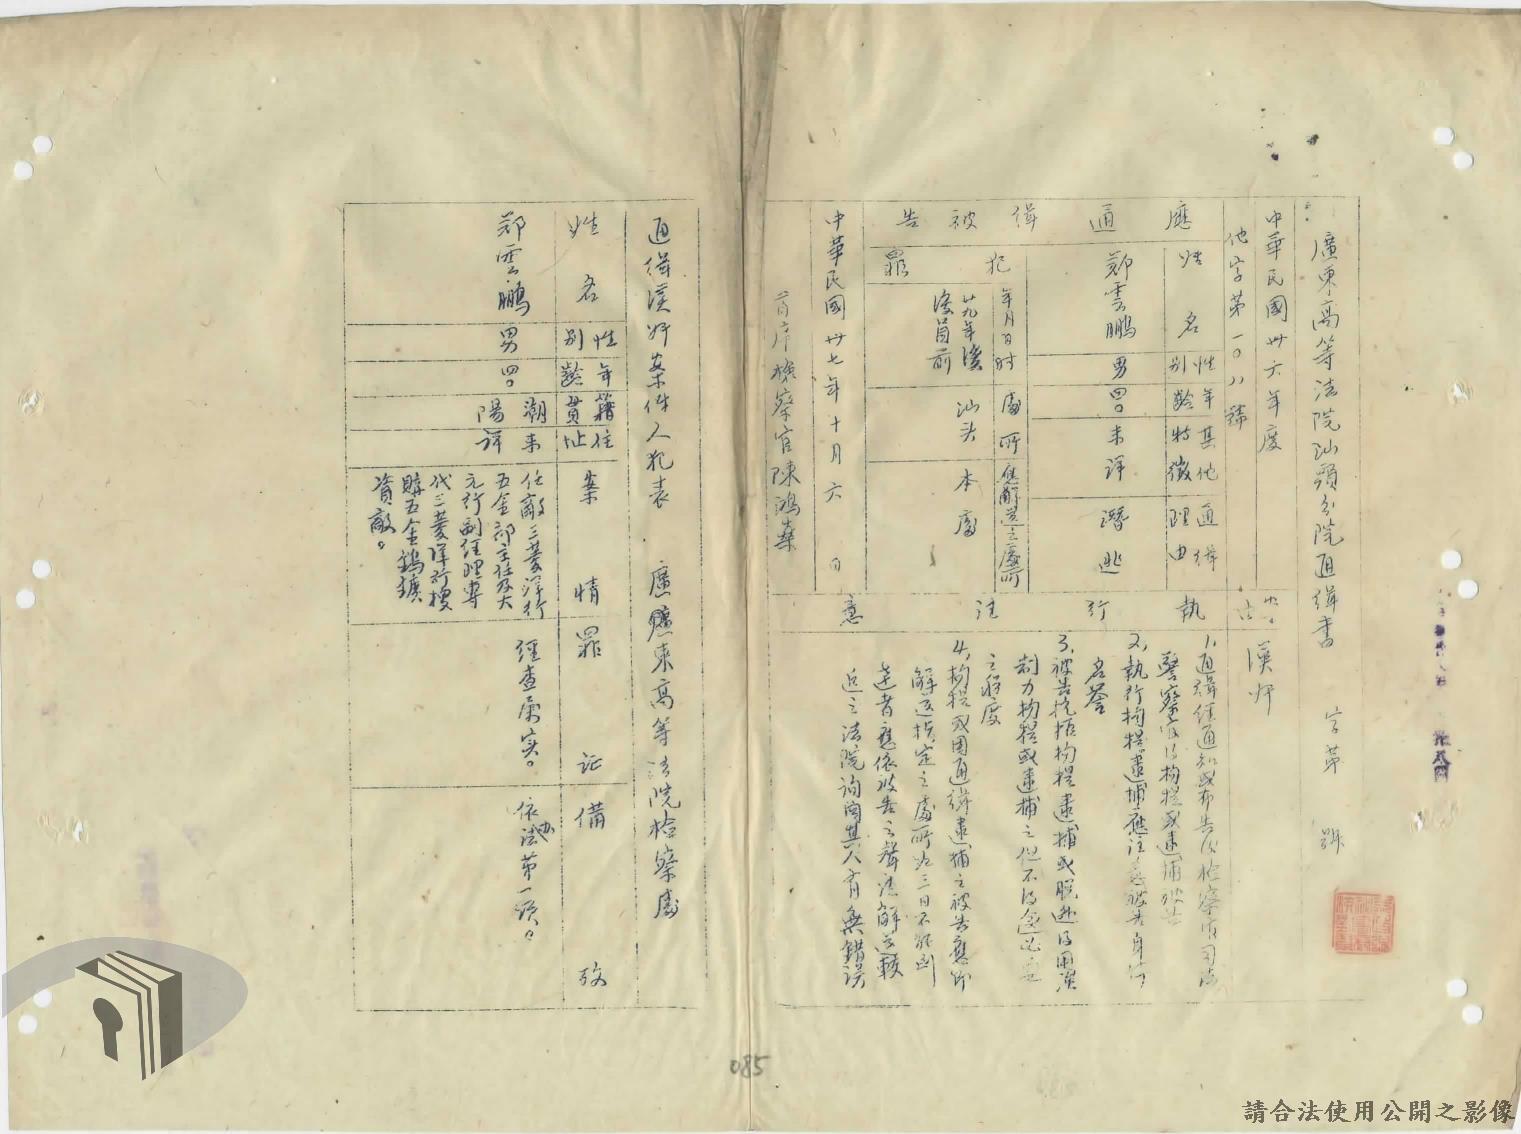 廣東高等法院汕頭分院通緝書　字第　號
中華民國卅六年度
他字第一〇八號
漢奸
應通緝被告
姓名　性別　年齡　其他特徵　通緝理由
鄭雲鵬　男　四〇　未詳　潛逃
犯罪
年月日時　處所　應解送之處所
廿九年淪陷前
汕头　本處
執行注意
1、通緝經通知或布告後檢察官司法
警察官得拘提或逮捕被告
2、執行拘提逮捕應注意被告身体
名譽
3、被告抗拒拘提逮捕或脱逃得用強
制力拘提或逮捕之但不得逾必要
之程度
4、拘提或因通緝逮捕之被告應即
解送指定之處所如三日不能到
達者應依被告之聲請解送較
近之法院詢問其人有無錯誤
中華民國卅七年十月六日
首席檢察官陳鴻業
通緝漢奸案件人犯表　廣東高等法院檢察處
姓名　性別　年齡　籍貫　住址　案情　罪証　備攷
鄭雲鵬　男　四〇　潮陽　未詳
任敵三菱洋行
五金部主任及大
元行副經理專
代三菱洋行搜
購五金鎢鑛
資敵。
經查屬实。
依法办第一項。
085
請合法使用公開之影像